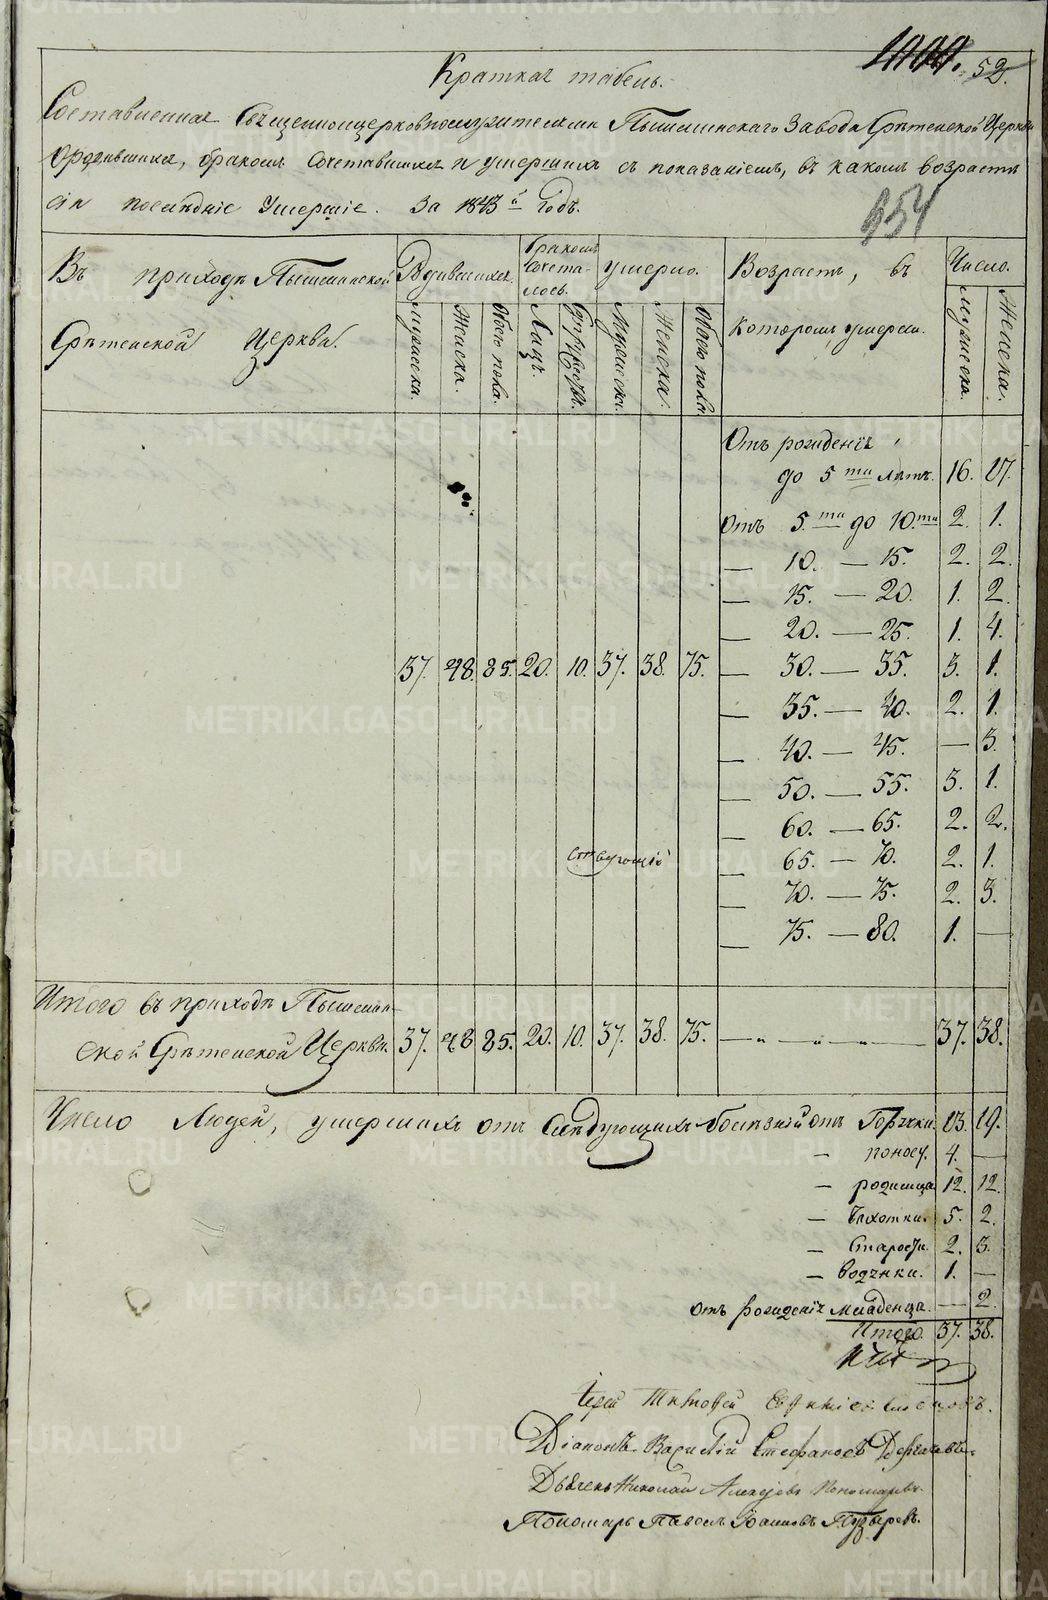 52.
Краткая табель.
Составленная Священноцерковнослужителями Пышминскаго Завода Срѣтенской Церкви
о родившихся, бракомъ Сочетавшихся и умершихъ съ показаніемъ, въ какомъ возрастѣ
сіи послѣдніе умершіе. За 1843й годъ.
954
Въ приходѣ Пышминской
Срѣтенской Церкви.
Родившихся.
Бракомъ Сочета-
лось.
умерло.
Возрастъ, въ
которомъ умерли.
Число.
мужеска. Женска. Обоего пола. Лицъ. Супружествъ. Мужеска. Женска. Обоего пола. мужеска. Женска.
Отъ рожденія
до 5ти лѣтъ. 16. 17.
Отъ 5ти до 10ти 2. 1.
— 10. — 15. 2. 2.
— 15. — 20. 1. 2.
— 20. — 25. 1. 4.
37. 48. 85. 20. 10. 37. 38. 75. — 30. — 35. 3. 1.
— 35. — 40. 2. 1.
— 40. — 45. — 3.
— 50. — 55. 3. 1.
— 60. — 65. 2. 2.
— 65. — 70. 2. 1.
— 70. — 75. 2. 3.
— 75. — 80. 1. —
Итого въ приходѣ Пышмин-
ской Срѣтенской Церкви. 37. 48 85. 20. 10. 37. 38. 75. — „ — „ — „ — 37. 38.
Число Людей, умершихъ отъ Слѣдующихъ болѣзній отъ Горячки. 13. 19.
— поносу. 4. —
— родимца 12. 12.
— Чахотки. 5. 2.
— Старости. 2. 3.
— водянки. 1. —
отъ рожденія младенца. — 2.
Итого. 37. 38.
Іерей Тимофей
Діаконъ Василій Стефановъ
Дьячекъ Николай Алексѣевъ Пономаревъ
Пономарь Павелъ Іоанновъ Пузыревъ.
METRIKI.GASO-URAL.RU